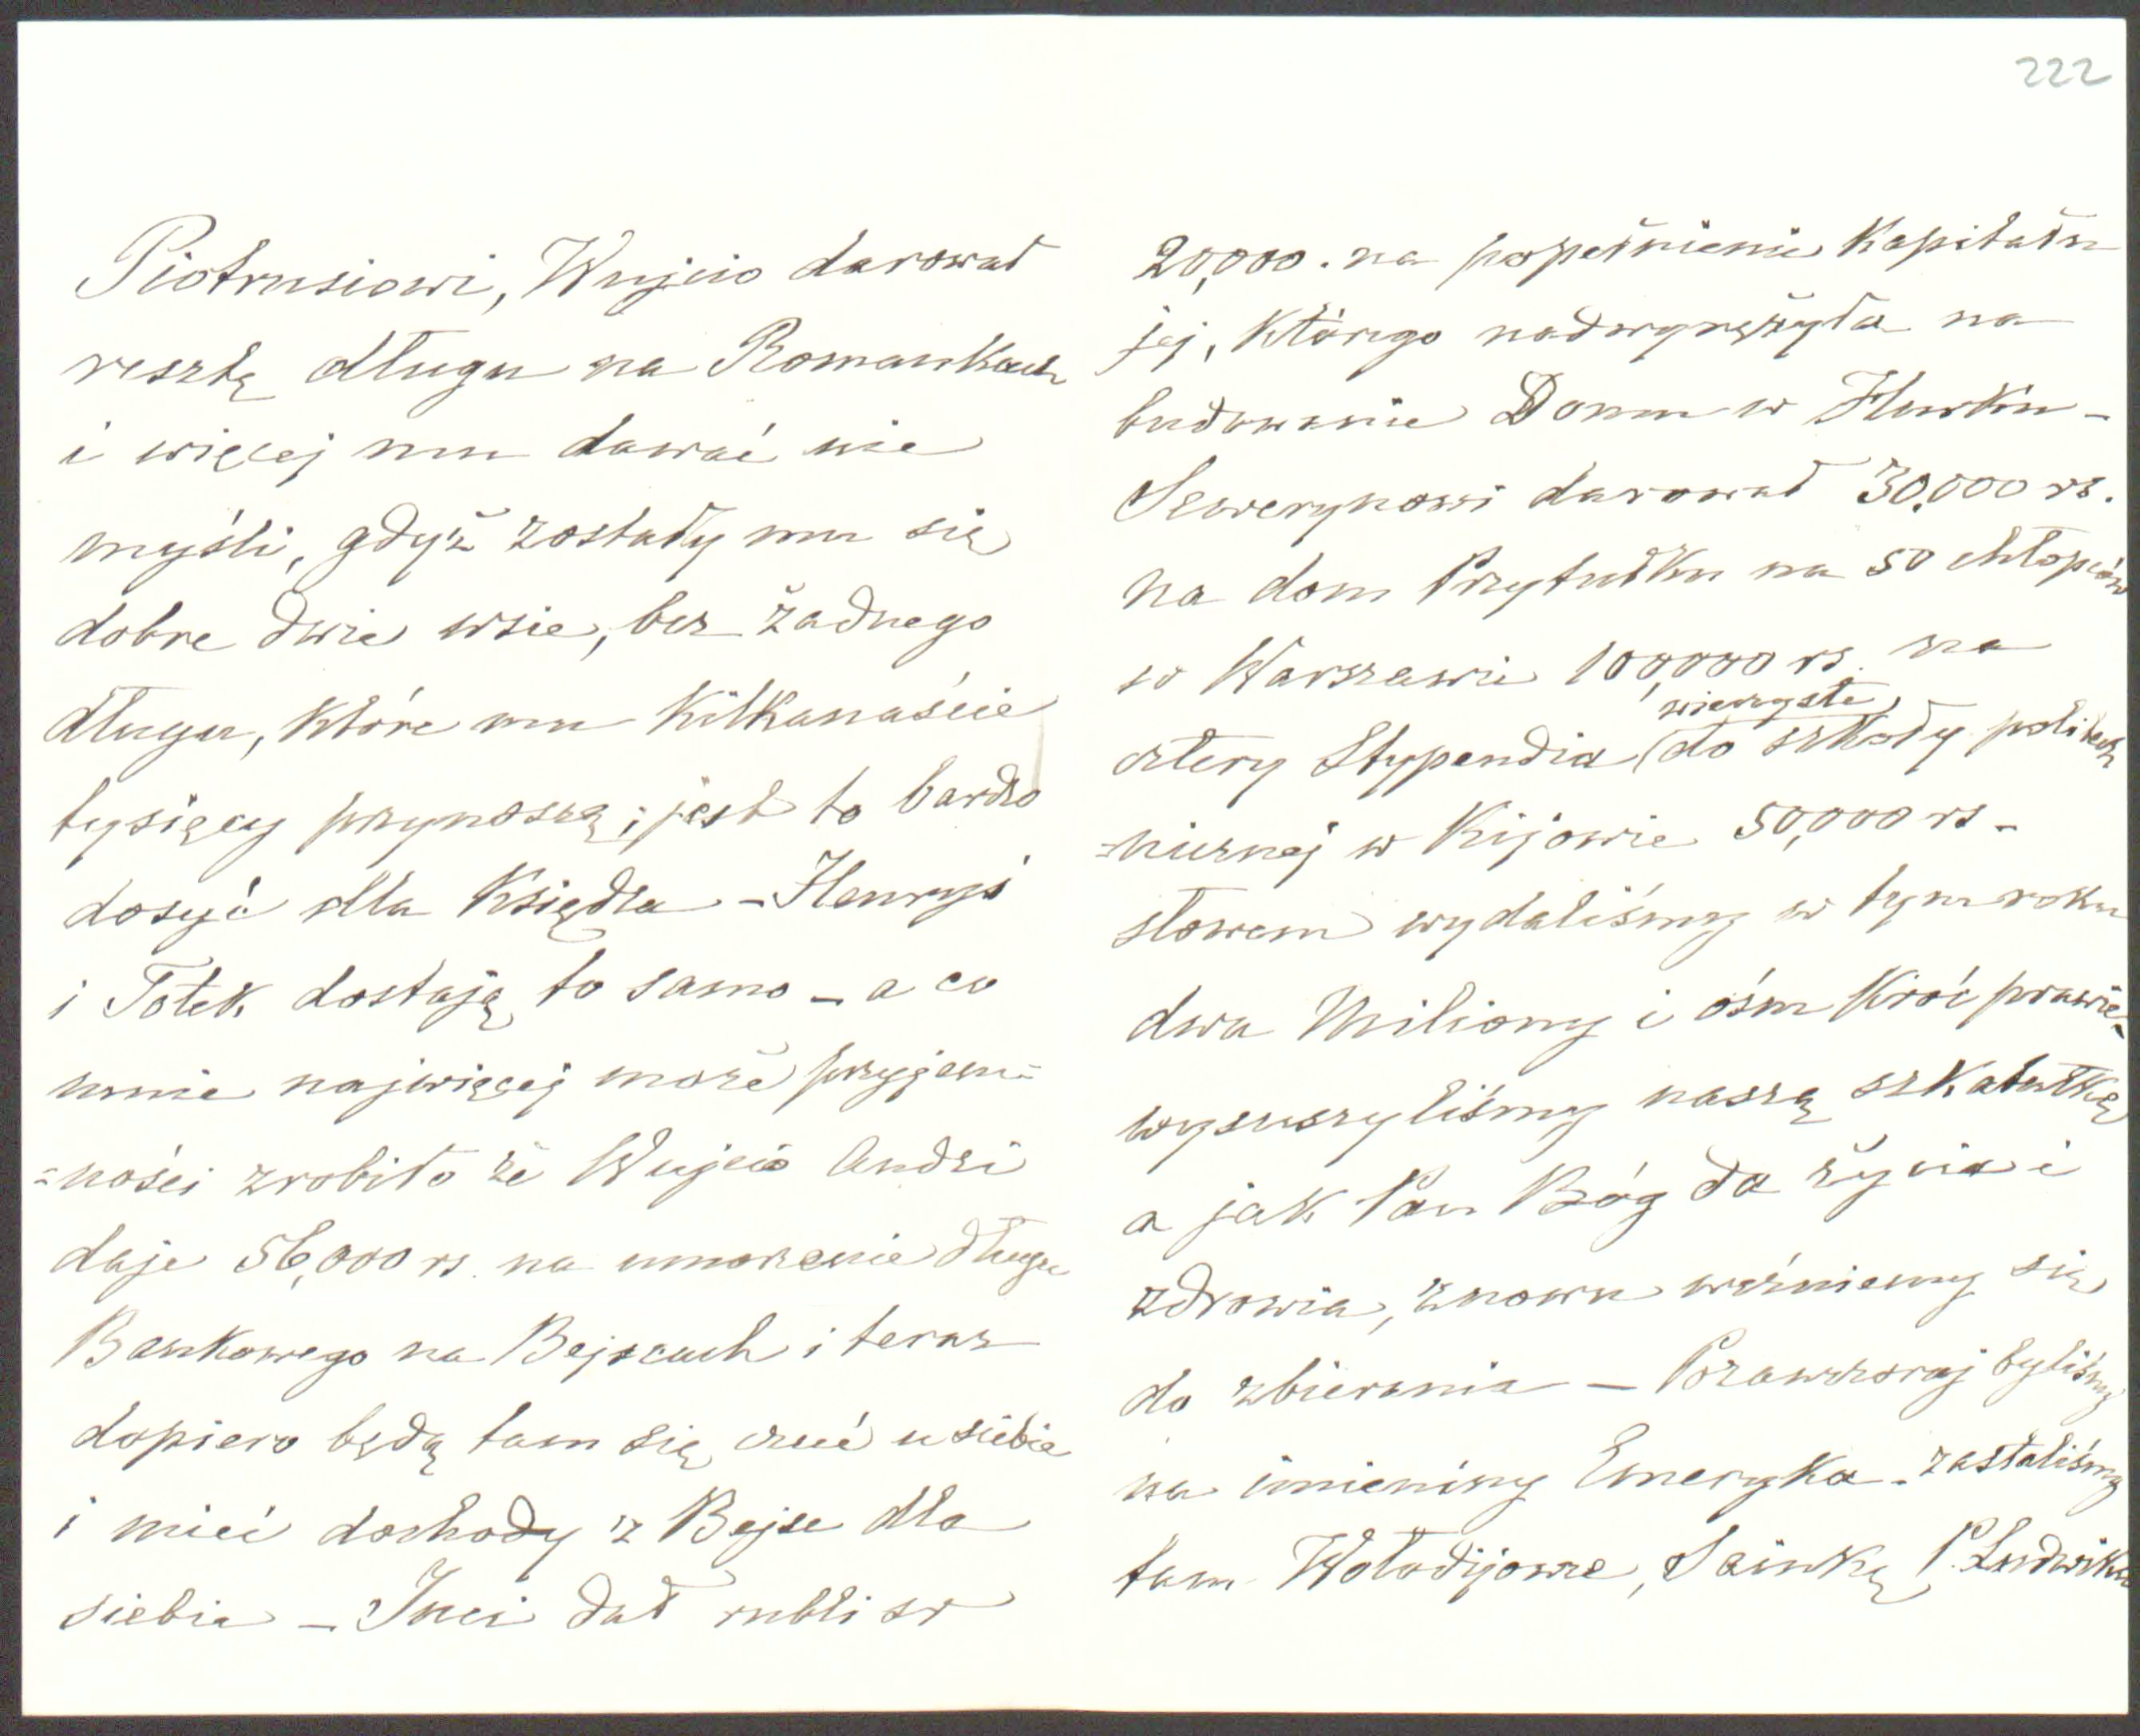 222
Piotrusiowi, Wujcio darował
resztę długu na Romankach
i więcej mu dawać nie
myśli, gdyż zostały mu się
dobre dwie wsie, bez żadnego
długu, które mu kilkanaście
tysięcy przynoszą; jest to bardzo
dosyć dla Księdza – Henryś
i Totek dostają to samo – a co
mnie najwięcej może przyjem=
=ności zrobiło że Wujcio Andzi
daje 56,000 rs. na umorzenie długu
Bankowego na Bejscach i teraz
dopiero będą tam się czuć u siebie
i mieć dochody z Bejsc dla
siebie – Inci dał rubli sr
20,000. na popełnienie Kapitału
jej, którego nadwyrężyła na
budowanie Domu w Hurku –
Sewerynowi darował 30,000 rs.
na dom Przytułku na 50 chłopców
w Warszawie 100,000 rs. na
wieczyste
cztery Stypendia (do szkoły politech
=nicznej w Kijowie 50,000 rs –
słowem wydaliśmy w tym roku
dwa Miliony i óśm kroć prawie –
wysuszyliśmy naszą szkatułkę
a jak Pan Bóg da życia i
zdrowia, znowu weźniemy się
do zbierania – Pozawczoraj byliśmy
na imieniny Emeryka – zastaliśmy
tam Wołodijowce, Sainkę, P. Ludwika